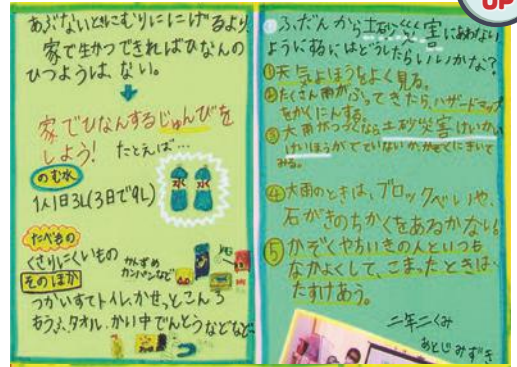 あぶないどにむりににげるより
家で生かつできればひなんの
ひつようは、ない。
家でひなんするじゅんびを
しよう! たとえば…
のむ水
1人1日3L(3日で9L)
水 水
たべもの
くさりにくいもの かんずめ
カンパンなど
そのほか
つかいすてトイレ、かせっとこんろ
もうふ、タオル、かい中でんとうなどなど
ふだんから土砂災害にあわない
ようにするにはどうしたらいいかな?
①天気よほうをよく見る。
②たくさん雨がふってきたら、ハザードマップ
をかくにんする。
③大雨がつづくなら土砂災害けいかい
けいほうがでていないか、かぞくにきいて
みる。
④大雨のときは、ブロックべいや、
石がきのちかくをあるかない。
⑤かぞくやちいきの人といつも
なかよくして、こまったときは、
たすけあう。
二年二くみ
あとじみずき
UP